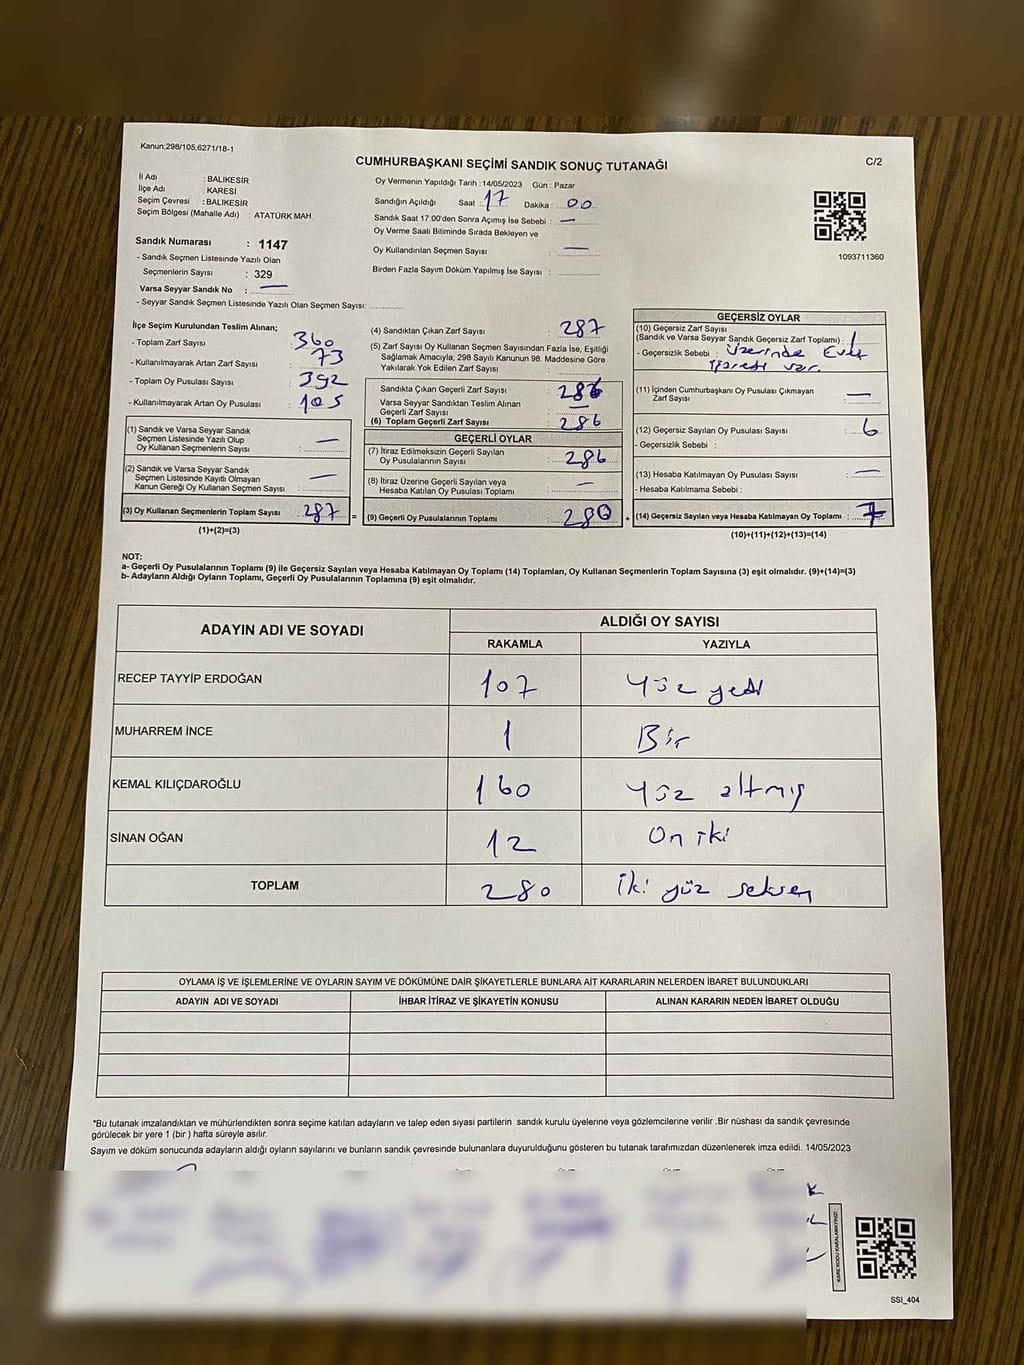 Kanun;298/105,6271/18-1
CUMHURBAŞKANI SEÇİMİ SANDIK SONUÇ TUTANAĞI
C/2
İl Adı : BALIKESİR
İlçe Adı : KARESİ
Seçim Çevresi : BALIKESİR
Seçim Bölgesi (Mahalle Adı) : ATATÜRK MAH.
Sandık Numarası : 1147
- Sandık Seçmen Listesinde Yazılı Olan
Seçmenlerin Sayısı : 329
Varsa Seyyar Sandık No : —
- Seyyar Sandık Seçmen Listesinde Yazılı Olan Seçmen Sayısı: ..............
Oy Vermenin Yapıldığı Tarih : 14/05/2023 Gün : Pazar
Sandığın Açıldığı Saat : 17 Dakika : 00
Sandık Saat 17:00'den Sonra Açımış İse Sebebi : —
Oy Verme Saati Bitiminde Sırada Bekleyen ve
Oy Kullandırılan Seçmen Sayısı : —
Birden Fazla Sayım Döküm Yapılmış İse Sayısı : ..............
1093711360
İlçe Seçim Kurulundan Teslim Alınan;
- Toplam Zarf Sayısı : 360
- Kullanılmayarak Artan Zarf Sayısı : 73
- Toplam Oy Pusulası Sayısı : 392
- Kullanılmayarak Artan Oy Pusulası : 105
(1) Sandık ve Varsa Seyyar Sandık
Seçmen Listesinde Yazılı Olup
Oy Kullanan Seçmenlerin Sayısı : —
(2) Sandık ve Varsa Seyyar Sandık
Seçmen Listesinde Kayıtlı Olmayan
Kanun Gereği Oy Kullanan Seçmen Sayısı : —
(3) Oy Kullanan Seçmenlerin Toplam Sayısı : 287 =
(1)+(2)=(3)
(4) Sandıktan Çıkan Zarf Sayısı : 287
(5) Zarf Sayısı Oy Kullanan Seçmen Sayısından Fazla İse, Eşitliği
Sağlamak Amacıyla; 298 Sayılı Kanunun 98. Maddesine Göre
Yakılarak Yok Edilen Zarf Sayısı : ..............
Sandıkta Çıkan Geçerli Zarf Sayısı : 286
Varsa Seyyar Sandıktan Teslim Alınan
Geçerli Zarf Sayısı : —
(6) Toplam Geçerli Zarf Sayısı : 286
GEÇERLİ OYLAR
(7) İtiraz Edilmeksizin Geçerli Sayılan
Oy Pusulalarının Sayısı : 286
(8) İtiraz Üzerine Geçerli Sayılan veya
Hesaba Katılan Oy Pusulası Toplamı : —
(9) Geçerli Oy Pusulalarının Toplamı : 280 +
GEÇERSİZ OYLAR
(10) Geçersiz Zarf Sayısı
(Sandık ve Varsa Seyyar Sandık Geçersiz Zarf Toplamı) : 1
- Geçersizlik Sebebi : Üzerinde Evet
işareti var.
(11) İçinden Cumhurbaşkanı Oy Pusulası Çıkmayan
Zarf Sayısı : —
(12) Geçersiz Sayılan Oy Pusulası Sayısı : 6
- Geçersizlik Sebebi :
(13) Hesaba Katılmayan Oy Pusulası Sayısı : —
- Hesaba Katılmama Sebebi :
(14) Geçersiz Sayılan veya Hesaba Katılmayan Oy Toplamı : 7
(10)+(11)+(12)+(13)=(14)
NOT:
a- Geçerli Oy Pusulalarının Toplamı (9) ile Geçersiz Sayılan veya Hesaba Katılmayan Oy Toplamı (14) Toplamları, Oy Kullanan Seçmenlerin Toplam Sayısına (3) eşit olmalıdır. (9)+(14)=(3)
b- Adayların Aldığı Oyların Toplamı, Geçerli Oy Pusulalarının Toplamına (9) eşit olmalıdır.
ADAYIN ADI VE SOYADI
ALDIĞI OY SAYISI
RAKAMLA YAZIYLA
RECEP TAYYİP ERDOĞAN 107 Yüz yedi
MUHARREM İNCE 1 Bir
KEMAL KILIÇDAROĞLU 160 Yüz altmış
SİNAN OĞAN 12 On iki
TOPLAM 280 İki yüz seksen
OYLAMA İŞ VE İŞLEMLERİNE VE OYLARIN SAYIM VE DÖKÜMÜNE DAİR ŞİKAYETLERLE BUNLARA AİT KARARLARIN NELERDEN İBARET BULUNDUKLARI
ADAYIN ADI VE SOYADI İHBAR İTİRAZ VE ŞİKAYETİN KONUSU ALINAN KARARIN NEDEN İBARET OLDUĞU
*Bu tutanak imzalandıktan ve mühürlendikten sonra seçime katılan adayların ve talep eden siyasi partilerin sandık kurulu üyelerine veya gözlemcilerine verilir .Bir nüshası da sandık çevresinde
görülecek bir yere 1 (bir ) hafta süreyle asılır.
Sayım ve döküm sonucunda adayların aldığı oyların sayılarını ve bunların sandık çevresinde bulunanlara duyurulduğunu gösteren bu tutanak tarafımızdan düzenlenerek imza edildi. 14/05/2023
KARE KODU KARALAMAYINIZ!
SSI_404